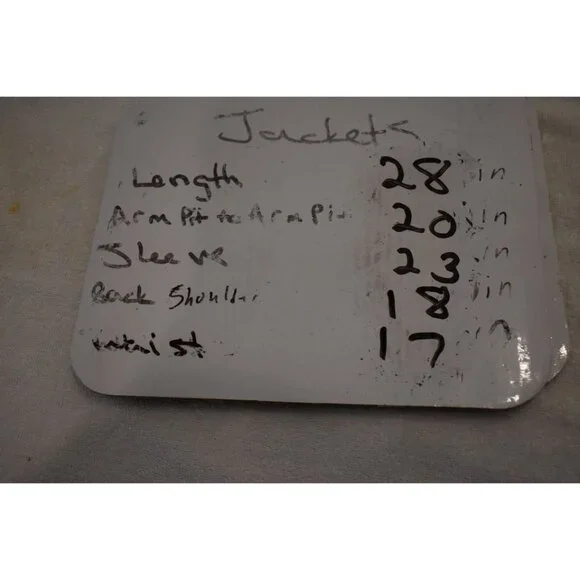 Jackets
Length 28 in
Arm Pit to Arm Pit 20 in
Sleeve 23 in
Back Shoulder 18 in
waist 17 in